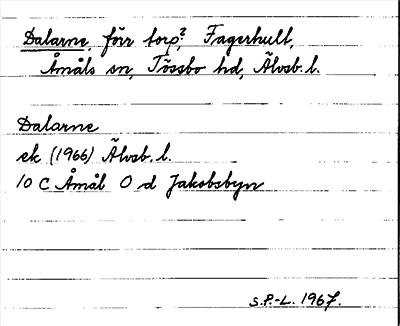 Dalarne, förr torp?, Fagerhult,
Åmåls sn, Tössbo hd, Älvsb. l.
Dalarne
ek (1966) Älvsb. l.
10 C Åmål O d Jakobsbyn
S.P.-L. 1967.